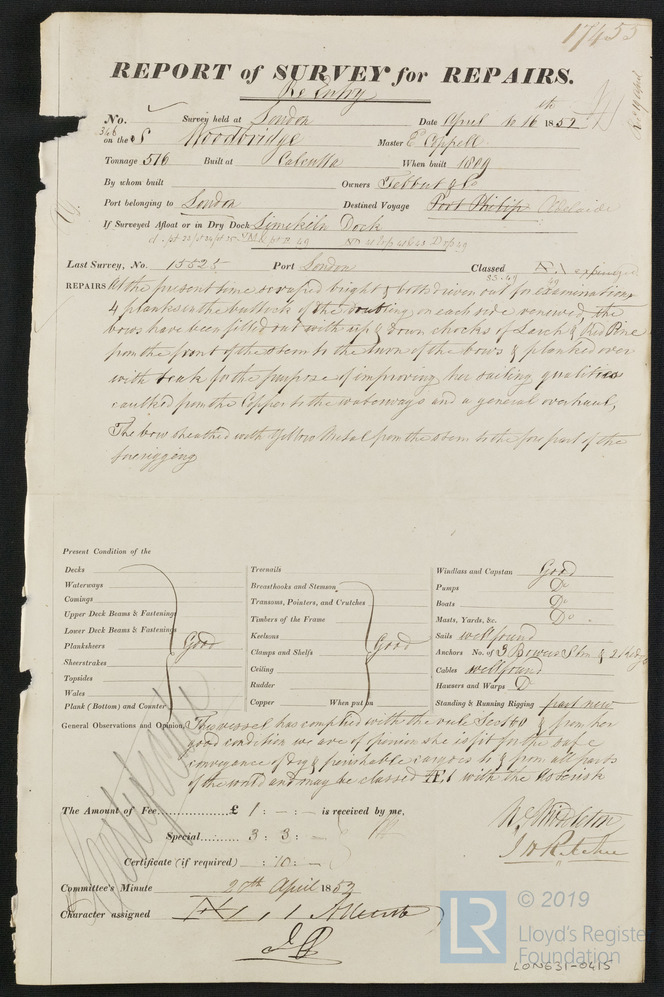 17455
REPORT of SURVEY for REPAIRS.
Re Entry
No. Survey held at London Date April 10 16th 1852
346
on the S Woodbridge Master E Coppell
Tonnage 516 Built at Calcutta When built 1809
By whom built Owners Tebbut & Co
Port belonging to London Destined Voyage Port Philip Adelaide
If Surveyed Afloat or in Dry Dock Limekiln Dock
Last Survey, No. 15525 Port London Classed expired
REPAIRS At the present time scraped bright & bolts driven out for examination
4 planks in the buttock of the doubling on each side renewed, the
bows have been filled out with up & down chocks of Larch & Red Pine
from the front of the stem to the turn of the bows & planked over
with teak for the purpose of improving her sailing qualities
caulked from the Copper to the waterways and a general overhaul,
The bow sheathed with Yellow Metal from the stem to the fore part of the
forerigging
Present Condition of the
Decks
Waterways
Comings
Upper Deck Beams & Fastenings
Lower Deck Beams & Fastenings
Planksheers Good
Sheerstrakes
Topsides
Wales
Plank (Bottom) and Counter
Treenails
Breasthooks and Stemson
Transoms, Pointers, and Crutches
Timbers of the Frame
Keelsons Good
Clamps and Shelfs
Ceiling
Rudder
Copper When put on
Windlass and Capstan Good
Pumps Do
Boats Do
Masts, Yards, &c. Do
Sails well found
Anchors No. of 3 Bowers 1 Stm & 2 Kedge
Cables well found
Hawsers and Warps D
Standing & Running Rigging part new
General Observations and Opinion, The vessel has complied with the rule Sect 60 & from her
good condition we are of opinion she is fit for the safe
conveyance of dry & perishable cargoes to & from all parts
of the world and may be classed Æ1 with the Asterisk
The Amount of Fee £ 1 : - : - is received by me,
Special 3 : 3 : -
Certificate (if required) - : 10 : -
W Middleton
J H Ritchie
Committee's Minute 20th April 1852
Character assigned
© 2019
LR
Lloyd's Registe
Foundation
LON631-0415